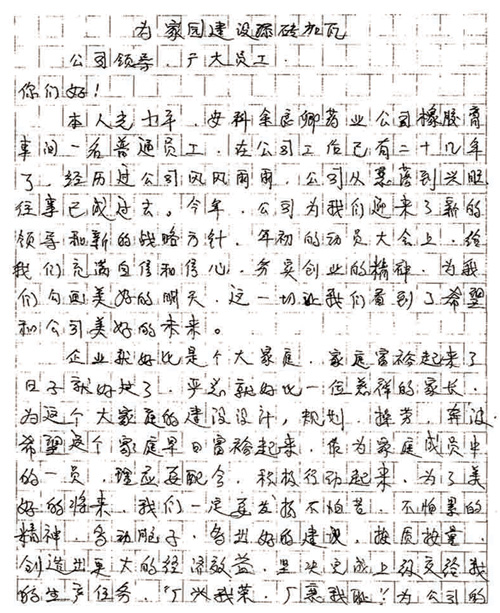 为家园建设添砖加瓦
公司领导、广大员工.
你们好!
本人老七年,安科余良卿药业公司橡胶膏
车间一名普通员工,在公司工作已有二十几年
了,经历过公司风风雨雨,公司从衰落到兴旺
往事已成过去。今年,公司为我们迎来了新的
领导和新的战略方针,年初的动员大会上,给
我们充满自信和信心,务实创业的精神,为我
们勾画美好的明天,这一切让我们看到了希望
和公司美好的未来。
企业就好比是个大家庭,家庭富裕起来了
日子就好过了,严总就好比一位慈祥的家长,
为这个大家庭的建设设计,规划,操劳,奔波,
希望这个家庭早日富裕起来,作为家庭成员中
的一员,理应要配合,积极行动起来,为了美
好的将来,我们一定要发扬不怕苦,不怕累的
精神,多动脑子,多出好的建议,按质按量,
创造出更大的经济效益,坚决完成上级交给我
的生产任务,“厂兴我荣,厂衰我耻”为公司的